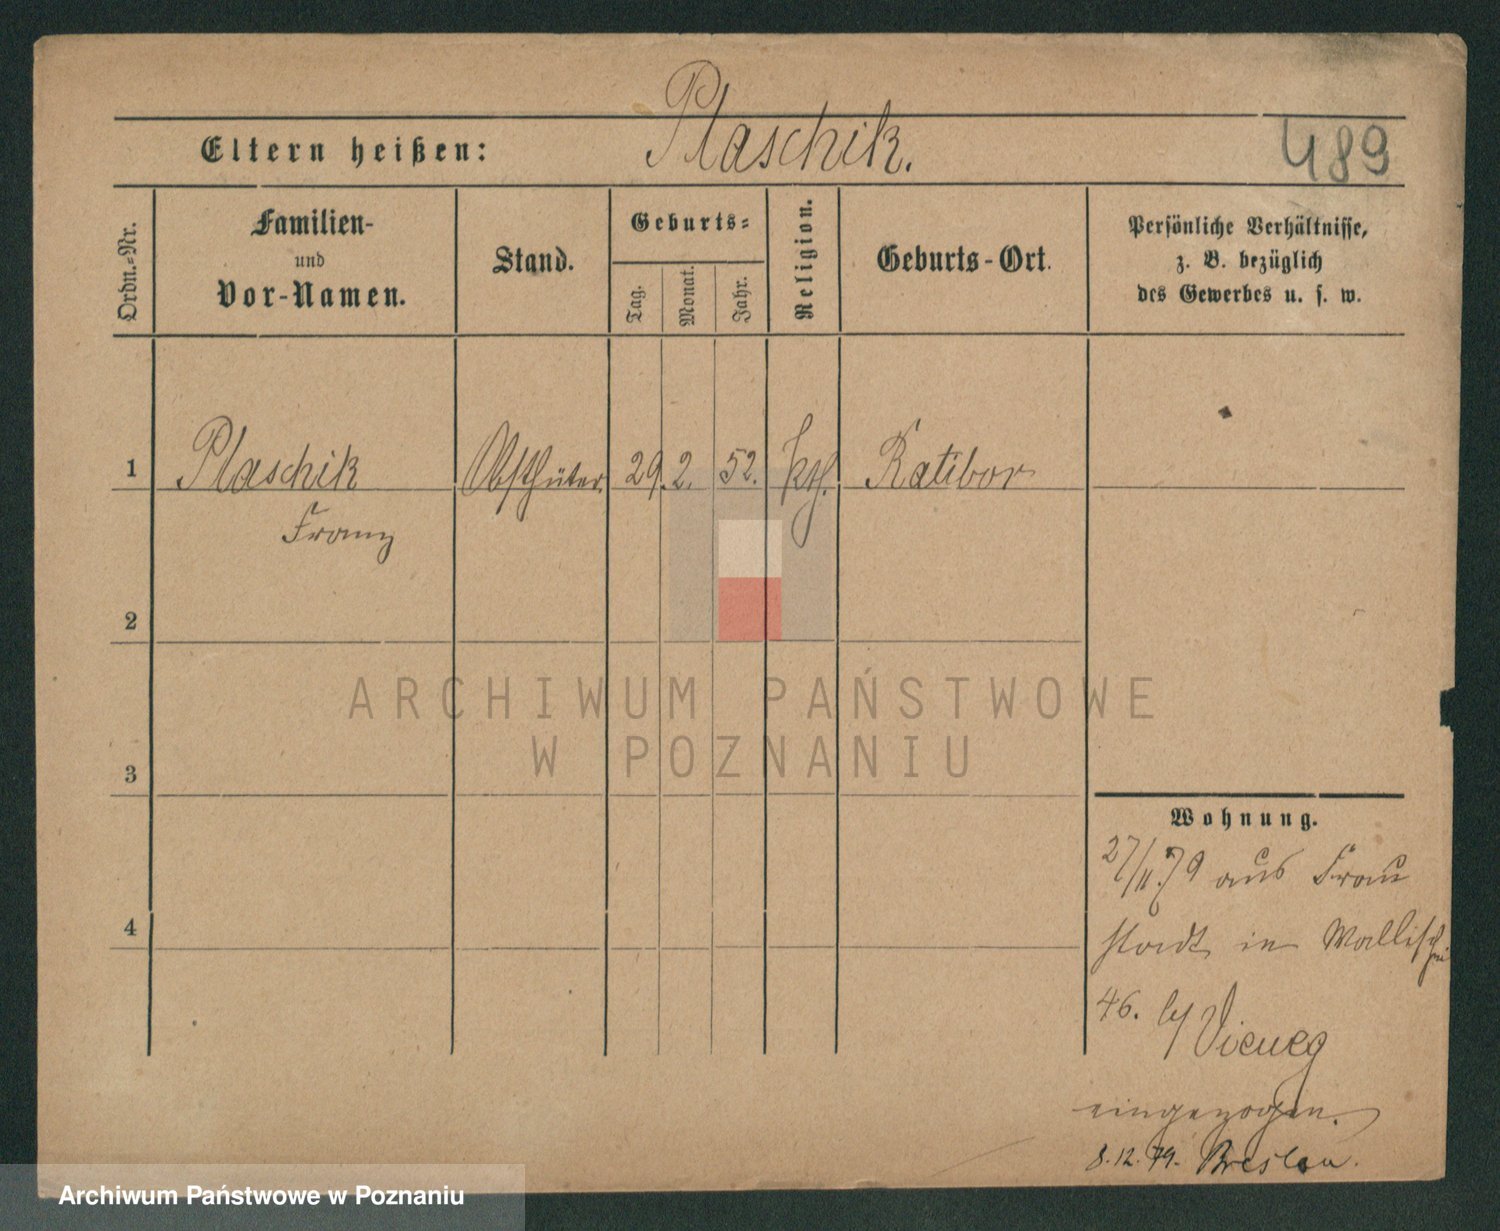 Plaschik.
Eltern heißen:
489
Ordn.-Nr.
Familien-
und
Vor-Namen.
Stand.
Geburts-
Tag.
Monat.
Jahr.
Religion.
Geburts-Ort.
Persönliche Verhältnisse,
z. B. bezüglich
des Gewerbes u. s. w.
1 Plaschik 29. 2. 52. kth. Ratibor
Franz
2
3
4
Wohnung.
27/11.79 aus Frau
stadt in Wallischei
46. bei Vieweg
eingezogen.
8.12.79. Breslau.
ARCHIWUM PAŃSTWOWE
W POZNANIU
Archiwum Państwowe w Poznaniu